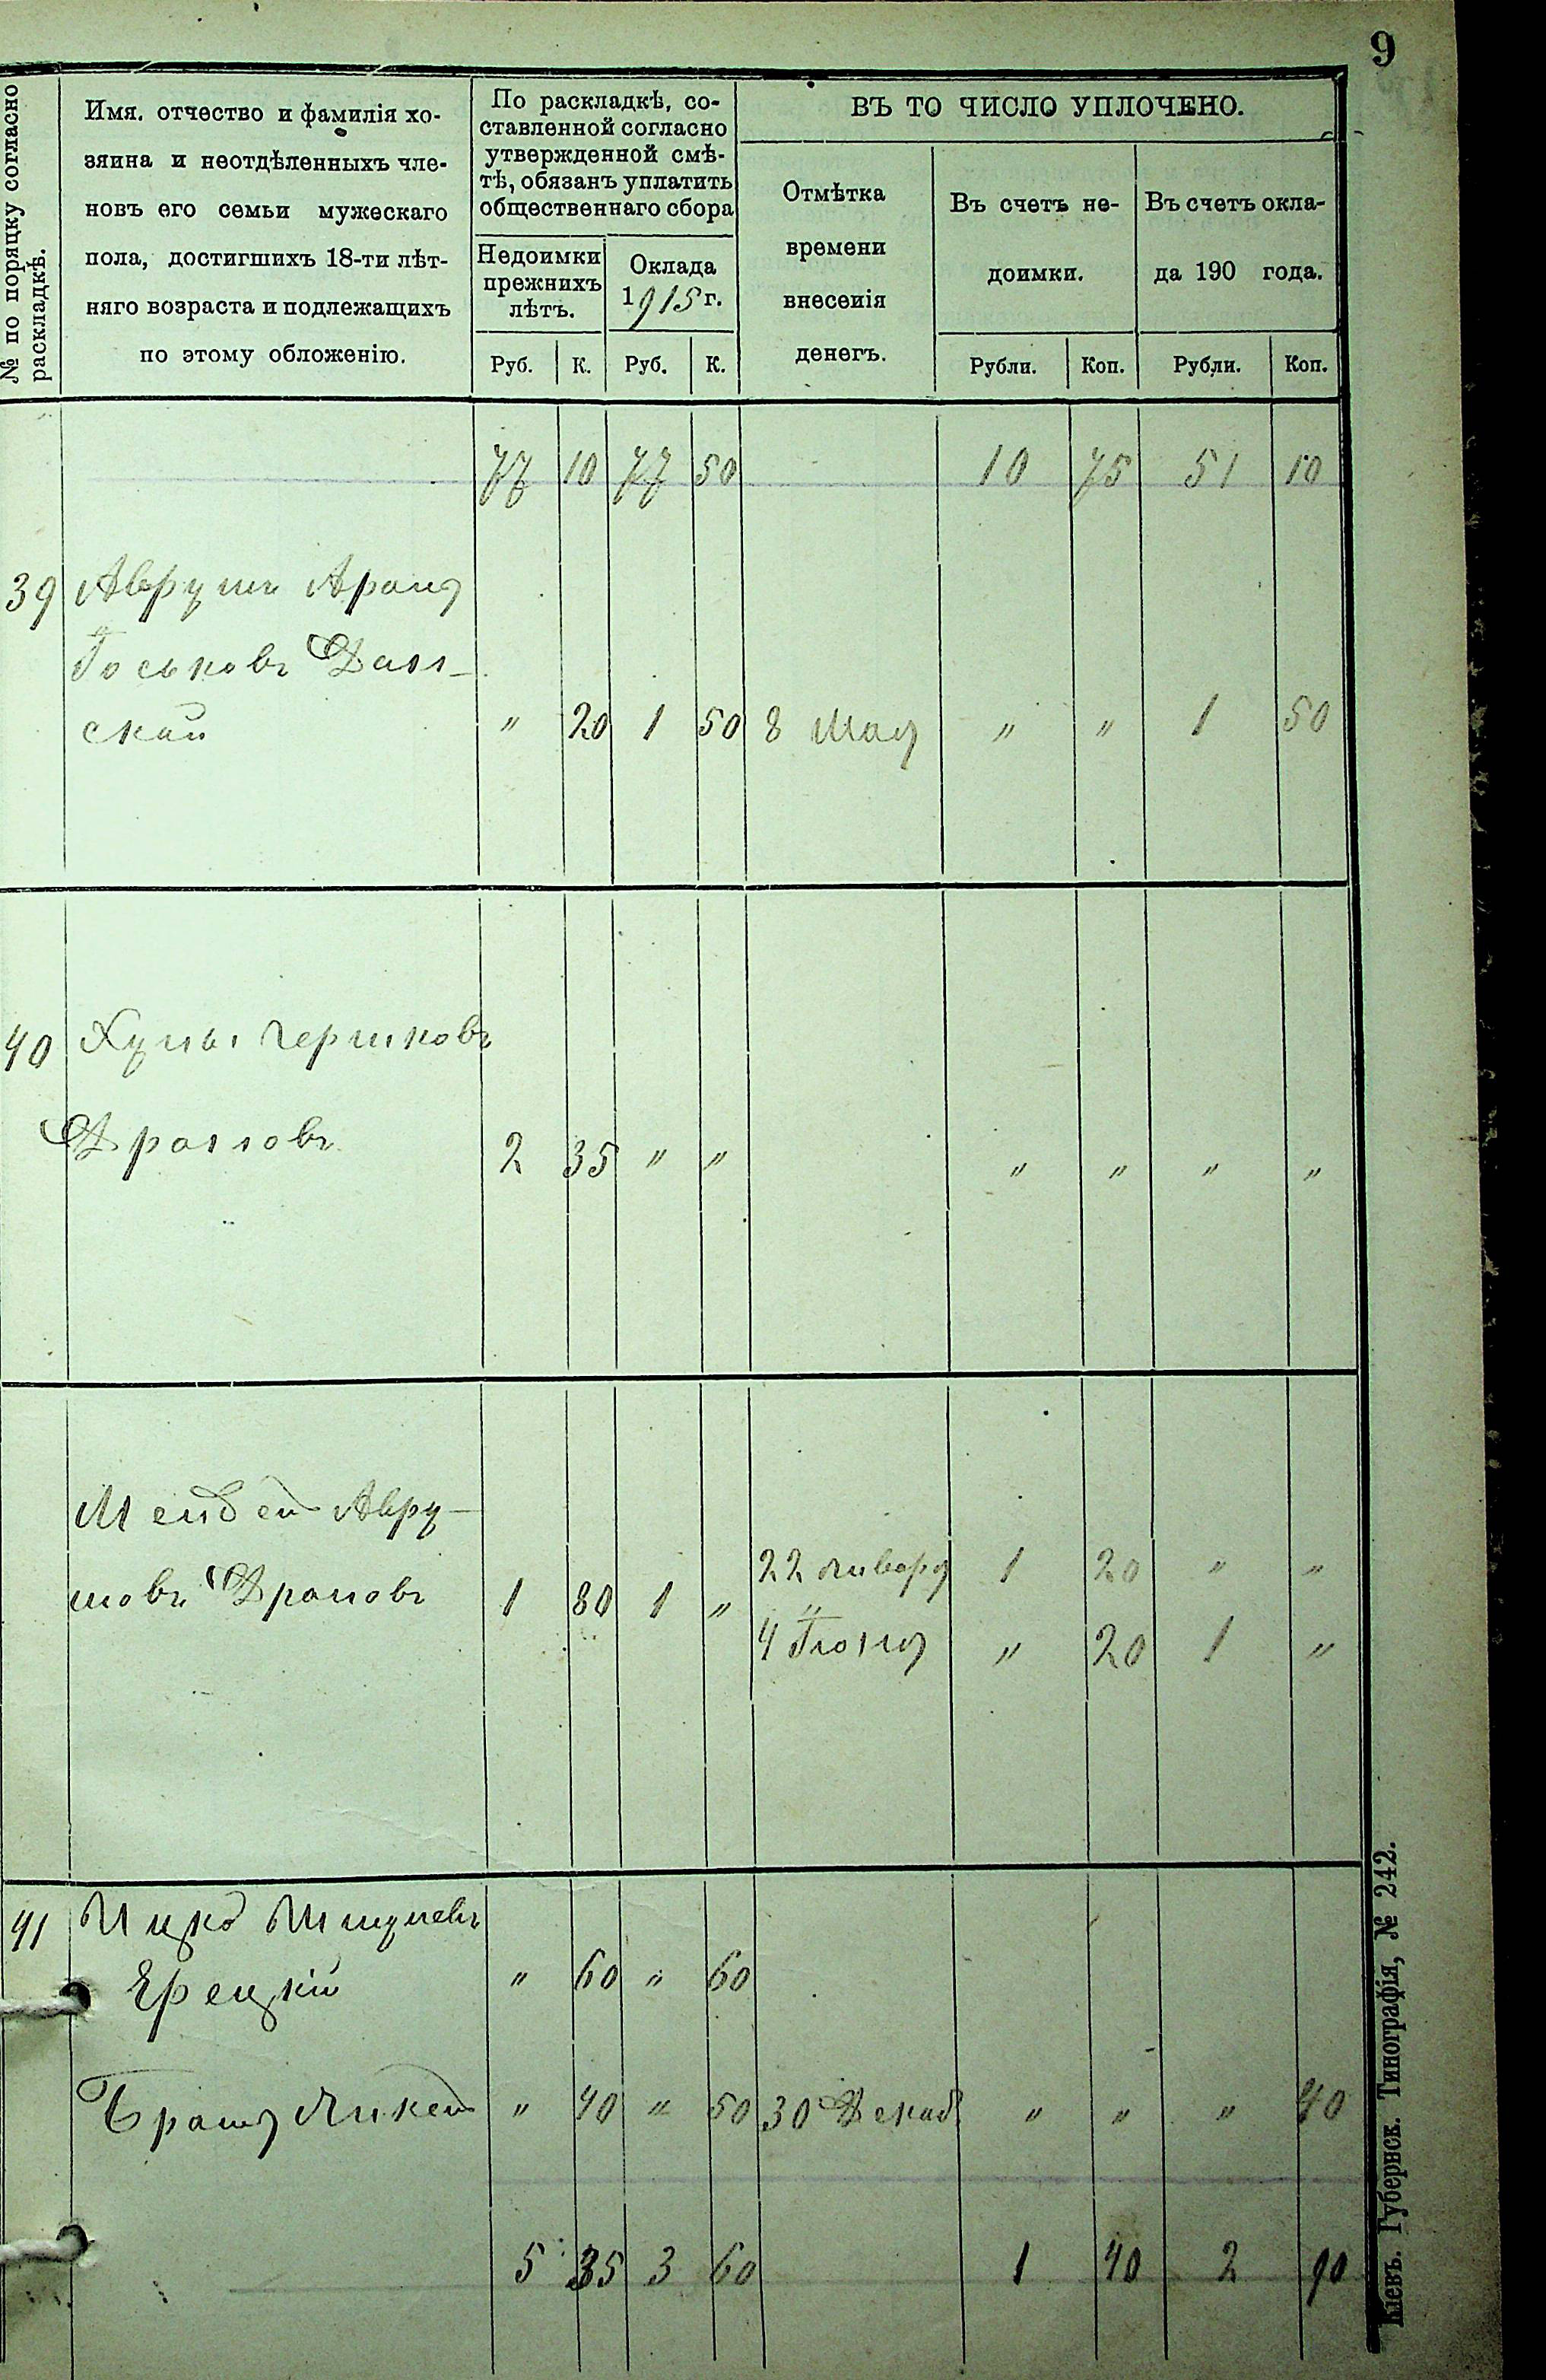 9
№ по поряцку согласно раскладкѣ.
Имя, отчество и фамилія хо-
зяина и неотдѣленныхъ чле-
новъ его семьи мужескаго
пола, достигшихъ 18-ти лѣт-
няго возраста и подлежащихъ
по этому обложенію.
По раскладкѣ, со-
ставленной согласно
утвержденной смѣ-
тѣ, обязанъ уплатить
общественнаго сбора
Недоимки
прежнихъ
лѣтъ.
Оклада
1915 г.
ВЪ ТО ЧИСЛО УПЛОЧЕНО.
Отмѣтка
времени
внесенія
денегъ.
Въ счетъ не-
доимки.
Въ счетъ окла-
да 190 года.
Руб. К. Руб. К. Рубли. Коп. Рубли. Коп.
77 10 77 50 10 75 51 10
39 Аврумъ Арон
Іоськовъ
ской " 20 1 50 8 Мая " " 1 50
40 Гершковъ
2 35 " " " " " "
Мендель Авру-
мовъ 1 80 1 " 22 Января 1 20 " "
4 Іюня " 20 1 "
41 Ицко
Ерецкій " 60 " 60
Братъ " 40 " 50 30 Декаб " " " 40
5 35 3 60 1 40 2 90
Губернск. Типографія, № 242.